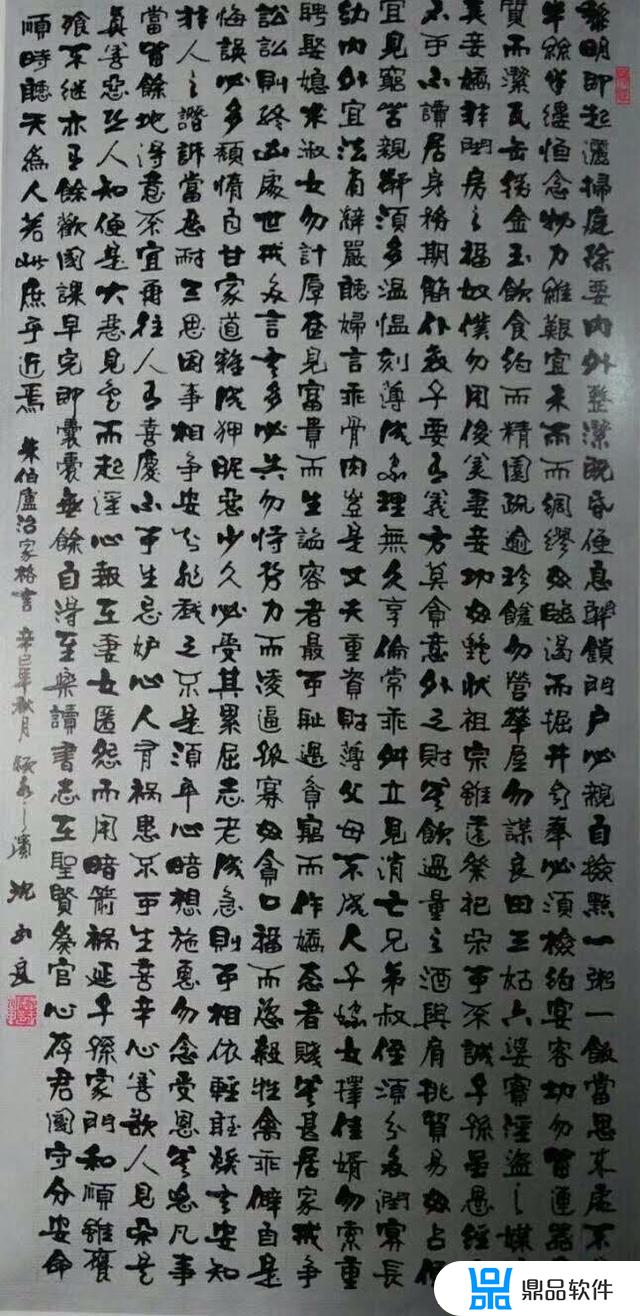 黎明即起灑掃庭除要內外整潔既昏便息關鎖門戶必親自檢點一粥一飯當思來處不
半絲半縷恒念物力維艱宜未雨而綢繆毋臨渴而掘井自奉必須檢約宴客切勿留連器
質而潔瓦缶勝金玉飲食約而精園蔬逾珍饈勿營華屋勿謀良田三姑六婆實淫盜之媒
美妾嬌非閨房之福奴僕勿用俊美妻妾切毋艷狀祖宗雖遠祭祀不可不誠子孫雖愚經
不可不讀居身務期簡朴教子要有義方莫貪意外之財莫飲過量之酒與肩挑貿易毋占便
宜見窮苦親鄰須多溫慍刻薄成家理無久享倫常乖舛立見消亡兄弟叔侄須分多潤寡長
幼內外宜法肅辭嚴聽婦言乖骨肉豈是丈夫重資財薄父母不成人子嫁女擇佳婿勿索重
聘娶媳求淑女勿計厚奩見富貴而生諂容者最可恥遇貧窮而作驕態者賤莫甚居家戒爭
訟訟則終凶處世戒多言言多必失勿恃勢力而凌逼孤寡毋貪口福而恣殺牲禽乖僻自是
悔誤必多頹惰自甘家道難成狎昵惡少久必受其累屈志老成急則可相依輕聽發言安知
非人之譖訴當忍耐三思因事相爭安知非我之不是須平心暗想施惠勿念受恩莫忘凡事
當留餘地得意不宜再往人有喜慶不可生忌妒心人有禍患不可生喜幸心善欲人見不是
真善惡恐人知便是大惡見色而起淫心報在妻女匿怨而用暗箭禍延子孫家門和順雖饔
飧不继亦有餘歡國課早完即囊橐無餘自得至樂讀書志在聖賢為官心存君國守分安命
順時聽天為人若此庶乎近焉 朱伯廬治家格言 辛巳年秋月 之濱 沈 良
鼎品软件